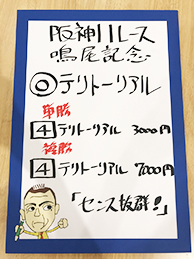 阪神11レース
鳴尾記念
◎テリトーリアル
単勝
4 テリトーリアル 3000円
複勝
4 テリトーリアル 7000円
「センス抜群!」